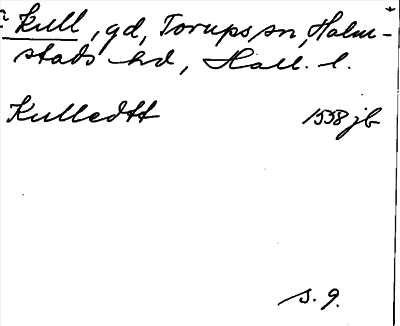 Kull, gd, Torups sn, Halm-
stads hd, Hall. l.
Kulledtt 1558 jb
s. 9.